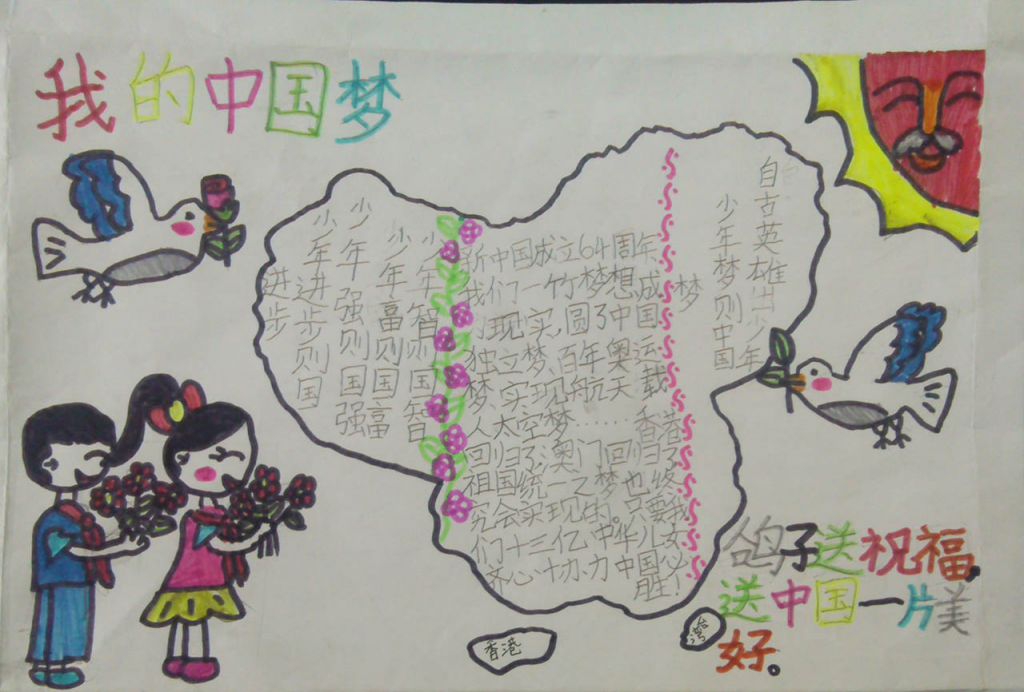 我的中国梦
自古英雄出少年
少年梦则中国
梦
新中国成立64周年
我们一个个梦想成
为现实,圆了中国
独立梦、百年奥运
梦、实现航天载
人太空梦……香港
回归了,澳门回归了
祖国统一之梦也终
究会实现的。只要我
们十三亿中华儿女
齐心协力中国必
胜!
少年智亦国智
少年富则国富
少年强则国强
少年进步则国
进步
香港
台湾
鸽子送祝福,
送中国一片美
好。